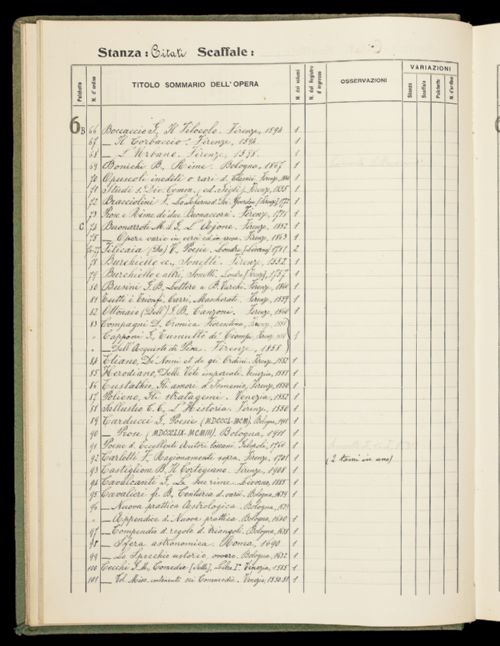 Stanza: Citati Scaffale:
Palchetto N. d'ordine TITOLO SOMMARIO DELL'OPERA N. dei volumi N. del Registro d'ingresso OSSERVAZIONI VARIAZIONI
Stanza Scaffale Palchetto N. d'ordine
6B 66 Boccaccio G. Il Filocolo. Firenze, 1594 1
67 — Il Corbaccio. Firenze, 1594 1
68 — L'Urbano. Firenze, 1598 1
69 Bonichi B. Rime. Bologna, 1867 1
70 Opuscoli inediti o rari di Classici, Firenze, 1
71 Studi s. Div. Comm., ed. Firenze, 1855 1
72 Bracciolini F. Lo Scherno d. Dei 1
73 Prose e Rime di due Buonaccorsi. Firenze, 1
C 74 Buonarroti M. d. G. L'Ajone. Firenze, 1852 1
75 — Opere varie in versi ed in prosa. Firenze, 1863 1
76-77 Filicaia V. Poesie, Londra (Livorno) 1781 2
78 Burchiello ec., Sonetti. Firenze, 1552 1
79 Burchiello e altri, Sonetti. Londra 1757 1
80 Busini G. B. Lettere a B. Varchi. Firenze, 1
81 Tutti i Trionfi, Carri, Mascherate. Firenze, 1559 1
82 Ottonaio (Dell') G. B. Canzone. Firenze, 1560 1
83 Compagni D. Cronica Fiorentina, Firenze, 1
Capponi G. Tumulto de' Ciompi, 1
— Dell'Acquisto di Pisa. Firenze, 1858
84 Eliano, Di Nomi et de gli Ordini. Firenze, 1552 1
85 Herodiano, Delle Vite imperiali. Venezia, 1551 1
86 Eustathio, Gli amori d'Ismenio, Firenze, 1550 1
87 Polieno, Gli stratagemi. Venezia, 1552 1
88 Sallustio C. C. L'Historia. Firenze, 1550 1
89 Carducci G. Poesie (MDCCCL-MCM). Bologna, 1901 1
90 — Prose (MDCCCLIX-MCMIII). Bologna, 1911 1
91 Poesie d. eccellenti Autori toscani. 1
92 Carletti F. Ragionamenti sopra. Firenze, 1701 1 (2 tomi in uno)
93 Castiglione B. Il Cortegiano. Firenze, 1908 1
94 Cavalcanti G. Le Rime. Livorno, 1885 1
95 Cavalieri fr. B. Centuria di varii. Bologna, 1639 1
96 — Nuova prattica Astrologica. Bologna, 1639 1
— Appendice d. Nuova prattica Bologna, 1640 1
97 — Compendio d. regole d. triangoli. Bologna, 1638 1
98 — Sfera astronomica. Roma, 1690 1
99 — Lo Specchio ustorio, ovvero. Bologna, 1632 1
100 Cecchi G. M. Comedie (Sette), Libro I°. Venezia, 1585 1
101 — Vol. Misc. contenente sei Commedie. Venezia, 1550-51 1